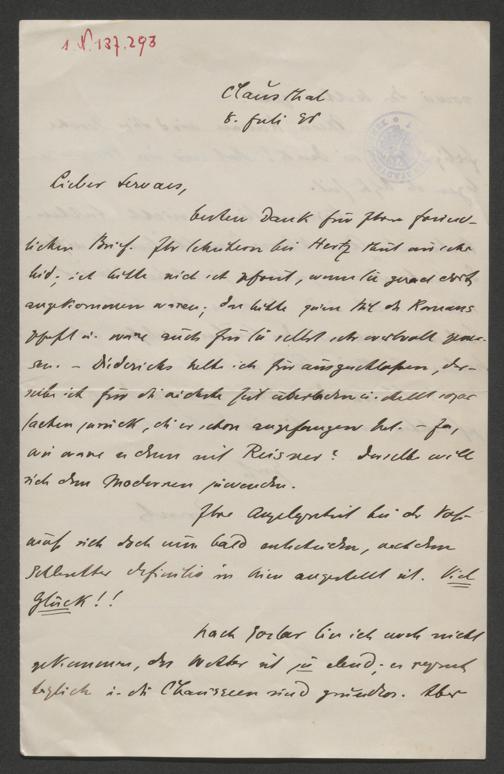 1. N. 137.293
Clausthal
8. Juli 98
Lieber Servaes,
besten Dank für Ihren freund-
lichen Brief. Ihr Scheitern bei Hertz thut mir sehr
leid; ich hätte mich sehr gefreut, wenn Sie gerade dort
angekommen wären; das hätte zum Stil des Romans
gepaßt u. wäre auch für Sie selbst sehr wertvoll gewe-
sen. – Diederichs halte ich für ausgeschlossen, der-
selbe ist für die nächste Zeit überladen u. stellt sogar
Sachen zurück, die er schon angefangen hat. – Ja,
wie wäre es denn mit Reisner? Derselbe will
sich dem Modernen zuwenden.
Ihre Angelegenheit bei der Voß
muß sich doch nun bald entscheiden, nachdem
Schlenther definitiv in Wien angestellt ist. Viel
Glück!!
Nach Goslar bin ich noch nicht
gekommen, das Wetter ist zu elend; es regnet
täglich u. die Chausseen sind grundlos. Aber